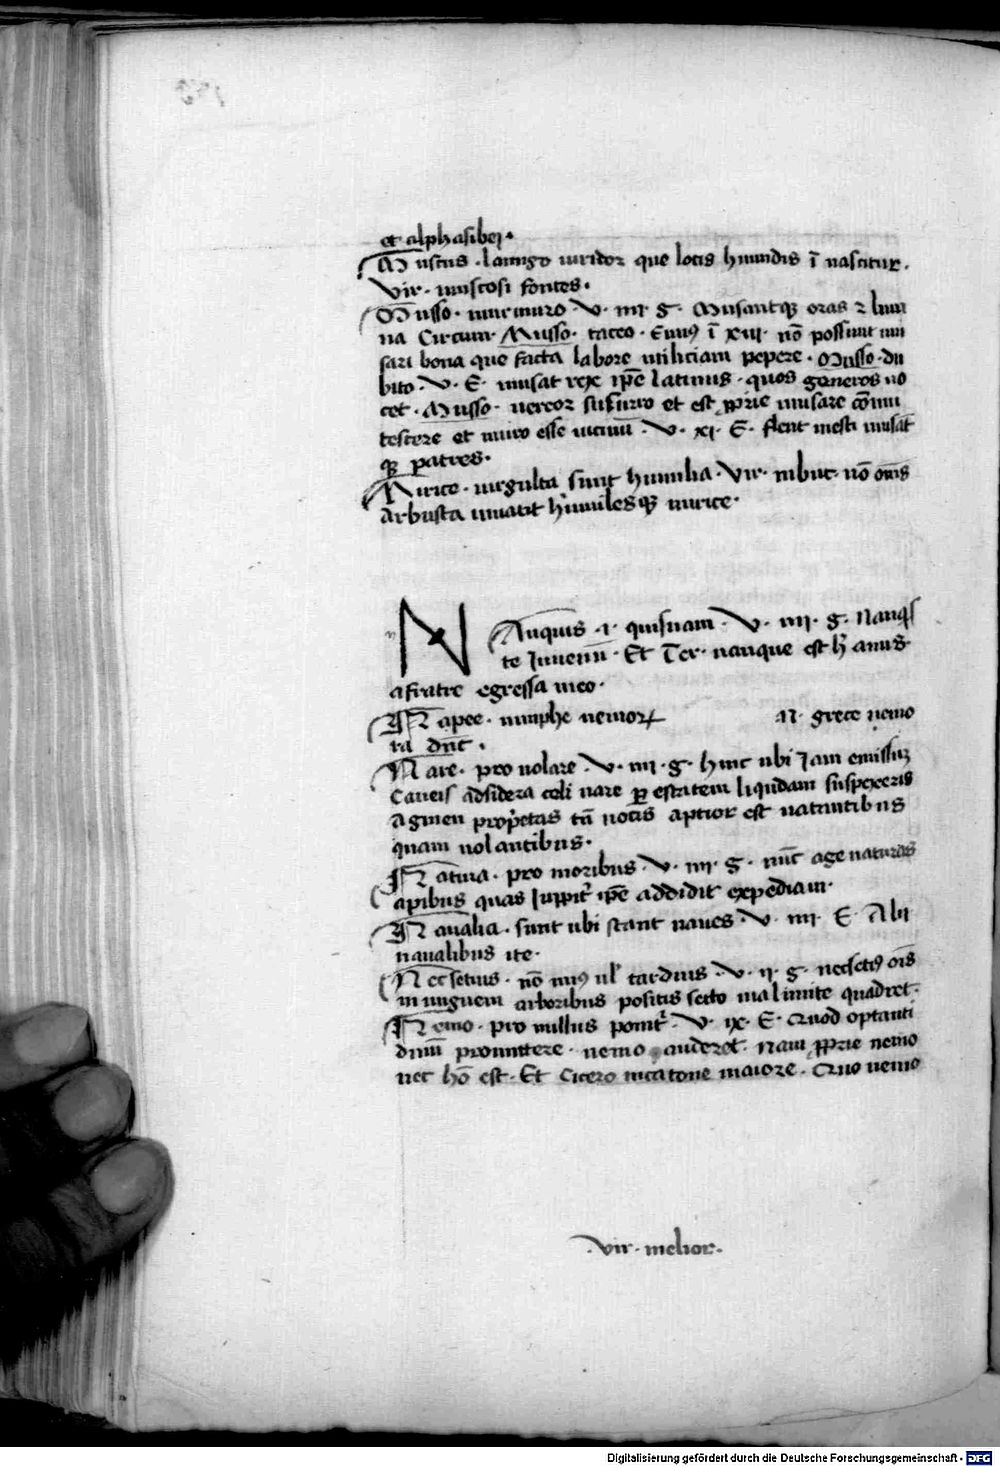 et alphasibei.
Muscus. lanugo viridor que locis humidis ī nascitur.
Vir. muscosi fontes.
Musso. murmuro. V. iiii. G. Musantqꝫ oras ⁊ limi
na Circum. Musso. taceo. Ennius ī xvii. nō possunt mu
sari bona que facta labore militiam pepere. Musso. du
bito. V. E. musat rex ip̄e latinus. quos generos uo
cet. Musso. uereor susurro et est ꝓprie musare cōmu
tescere et muto esse uicinū. V. xi. E. flent mesti musāt
qꝫ patres.
Mirice. uirgulta sunt humilia. Vir. in buc. nō om̄s
Arbusta iuuant humilesqꝫ mirice.
Nanquis .i. quisnam. V. iiii. G. Nanqꝫ
te Iuuenū. Et Ter. nanque est hec anus
a fratre egressa meo.
Napee. nimphe nemorꝝ N. grece nemo
ra dn̄t.
Nare. pro uolare. V. iiii. G. hinc ubi Iam emissuꝫ
Caueis ad sidera celi nare ꝑ estatem liquidam suspexeris
Agmen proprietas tn̄ uocis aptior est natantibus
quam uolantibus.
Natura. pro moribus. V. iiii. G. nūc age naturas
apibus quas Iuppiter ip̄e addidit expediam.
Naualia. sunt ubi stant naues. V. iiii. E. Abi
naualibus ite.
Nec setius. nō minus uel tardius. V. ii. G. nec setius ōis
in unguem arboribus positis secto uia limite quadret.
Nemo. pro nullus ponitur. V. ix. E. Quod optanti
diuū promittere. nemo auderet. Nam ꝓprie nemo
nec hō est. Et Cicero in catone maiore. Quo nemo
Vir. melior.
Digitalisierung gefördert durch die Deutsche Forschungsgemeinschaft - DFG